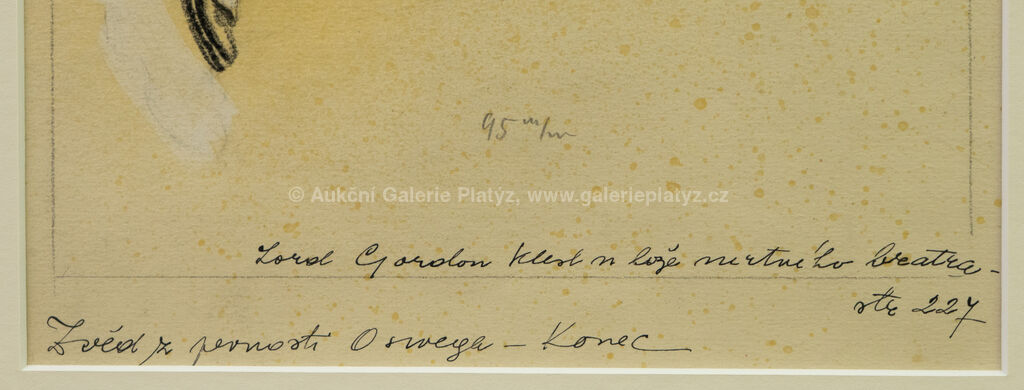 95 m/m
© Aukční Galerie Platýz, www.galerieplatyz.cz
Lord Gordon klesl u lože mrtvého bratra –
str 227
Zvěd z pevnosti Oswega – Konec